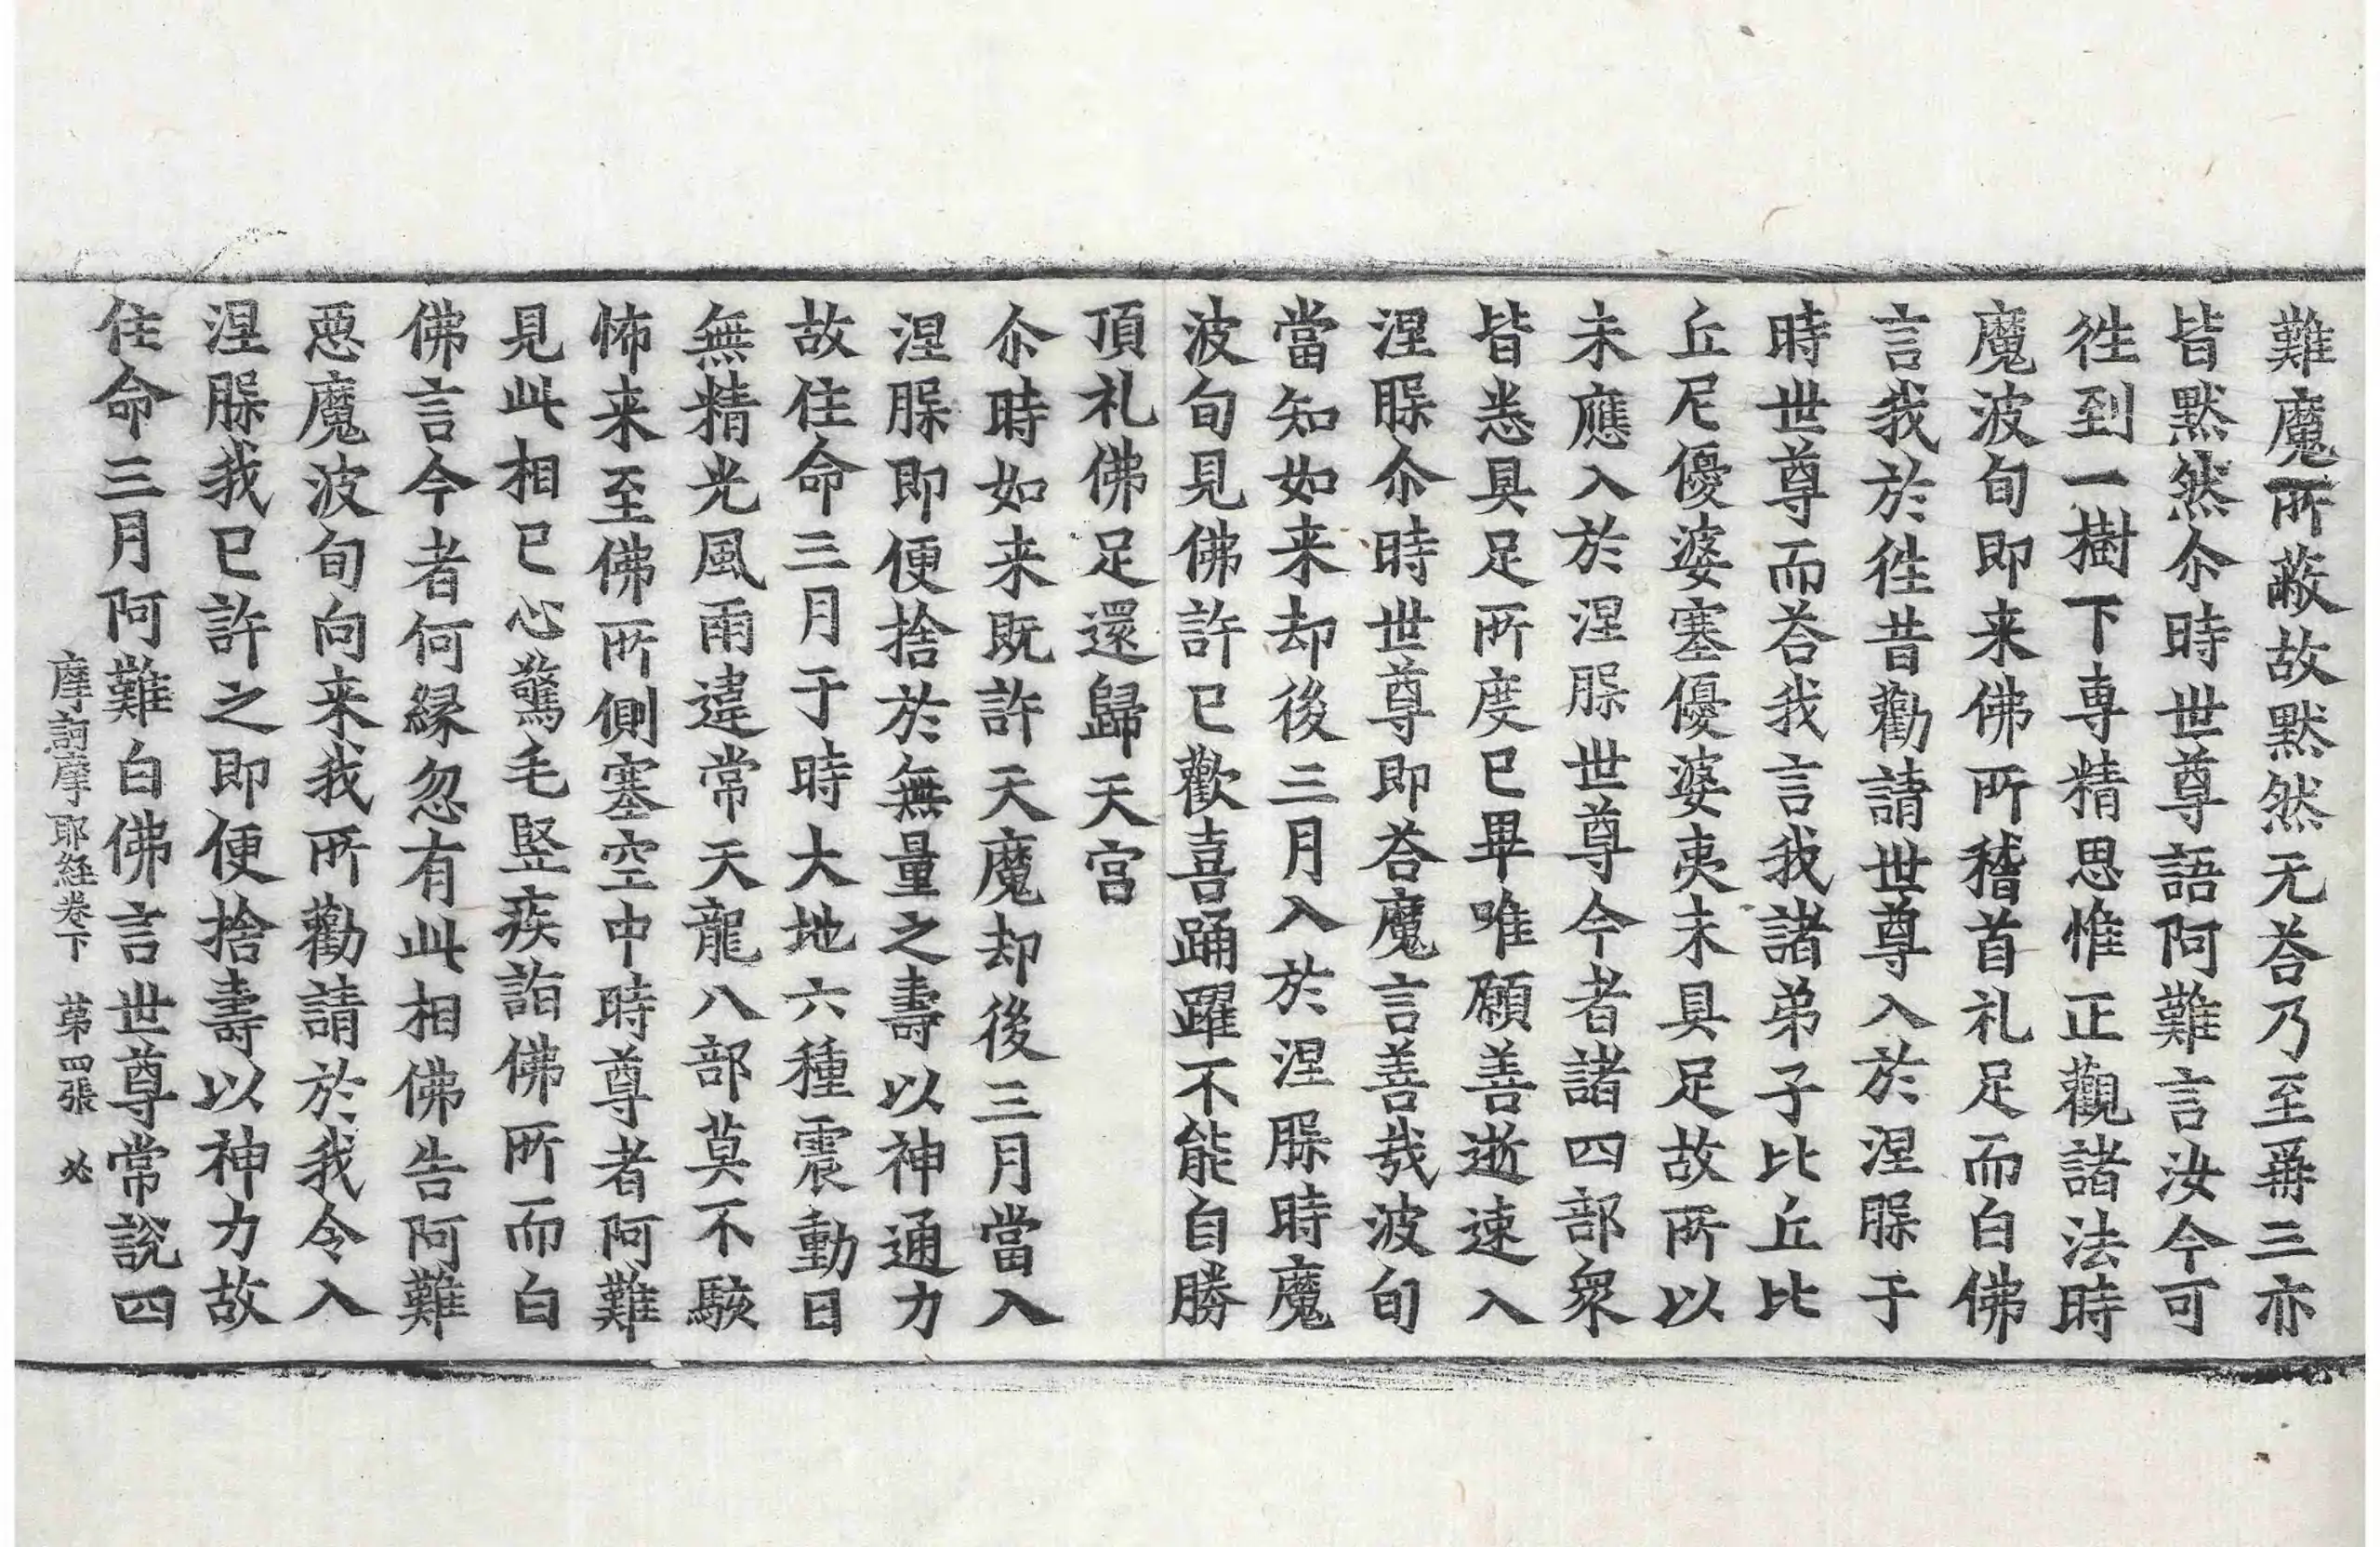 難魔所蔽故黙然无荅乃至再三亦
皆黙然尒時世尊語阿難言汝今可
徃到一樹下専精思惟正觀諸法時
魔波旬即来佛所稽首礼足而白佛
言我於徃昔勸請世尊入於涅脲于
時世尊而荅我言我諸弟子比丘比
丘尼優婆塞優婆夷未具足故所以
未應入於涅脲世尊今者諸四部衆
皆悉具足所度已畢唯願善逝速入
涅脲尒時世尊即荅魔言善哉波旬
當知如来却後三月入於涅脲時魔
波旬見佛許已歡喜踊躍不能自勝
頂礼佛足還歸天宫
尒時如来既許天魔却後三月當入
涅脲即便捨於無量之壽以神通力
故住命三月于時大地六種震動日
無精光風雨違常天龍八部莫不駭
怖来至佛所側塞空中時尊者阿難
見此相已心驚毛竪疾詣佛所而白
佛言今者何縁忽有此相佛告阿難
惡魔波旬向来我所勸請於我令入
涅脲我已許之即便捨壽以神力故
住命三月阿難白佛言世尊常説四
摩訶摩耶経卷下 苐四張 必